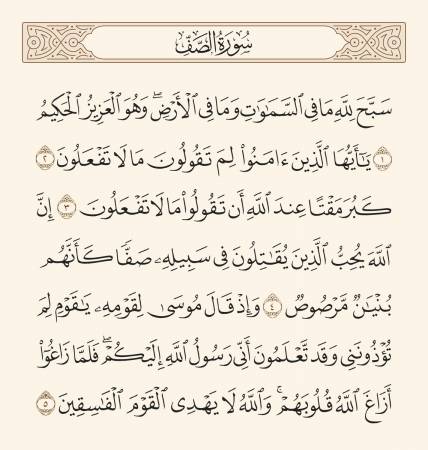 سُورَةُ الصَّفِّ
سَبَّحَ لِلَّهِ مَا فِي السَّمَٰوَٰتِ وَمَا فِي الْأَرْضِ ۖ وَهُوَ الْعَزِيزُ الْحَكِيمُ
١ يَٰٓأَيُّهَا الَّذِينَ ءَامَنُوا۟ لِمَ تَقُولُونَ مَا لَا تَفْعَلُونَ ٢
كَبُرَ مَقْتًا عِندَ اللَّهِ أَن تَقُولُوا۟ مَا لَا تَفْعَلُونَ ٣ إِنَّ
اللَّهَ يُحِبُّ الَّذِينَ يُقَٰتِلُونَ فِي سَبِيلِهِۦ صَفًّا كَأَنَّهُم
بُنْيَٰنٌ مَّرْصُوصٌ ٤ وَإِذْ قَالَ مُوسَىٰ لِقَوْمِهِۦ يَٰقَوْمِ لِمَ
تُؤْذُونَنِي وَقَد تَّعْلَمُونَ أَنِّي رَسُولُ اللَّهِ إِلَيْكُمْ ۖ فَلَمَّا زَاغُوٓا۟
أَزَاغَ اللَّهُ قُلُوبَهُمْ ۚ وَاللَّهُ لَا يَهْدِي الْقَوْمَ الْفَٰسِقِينَ ٥